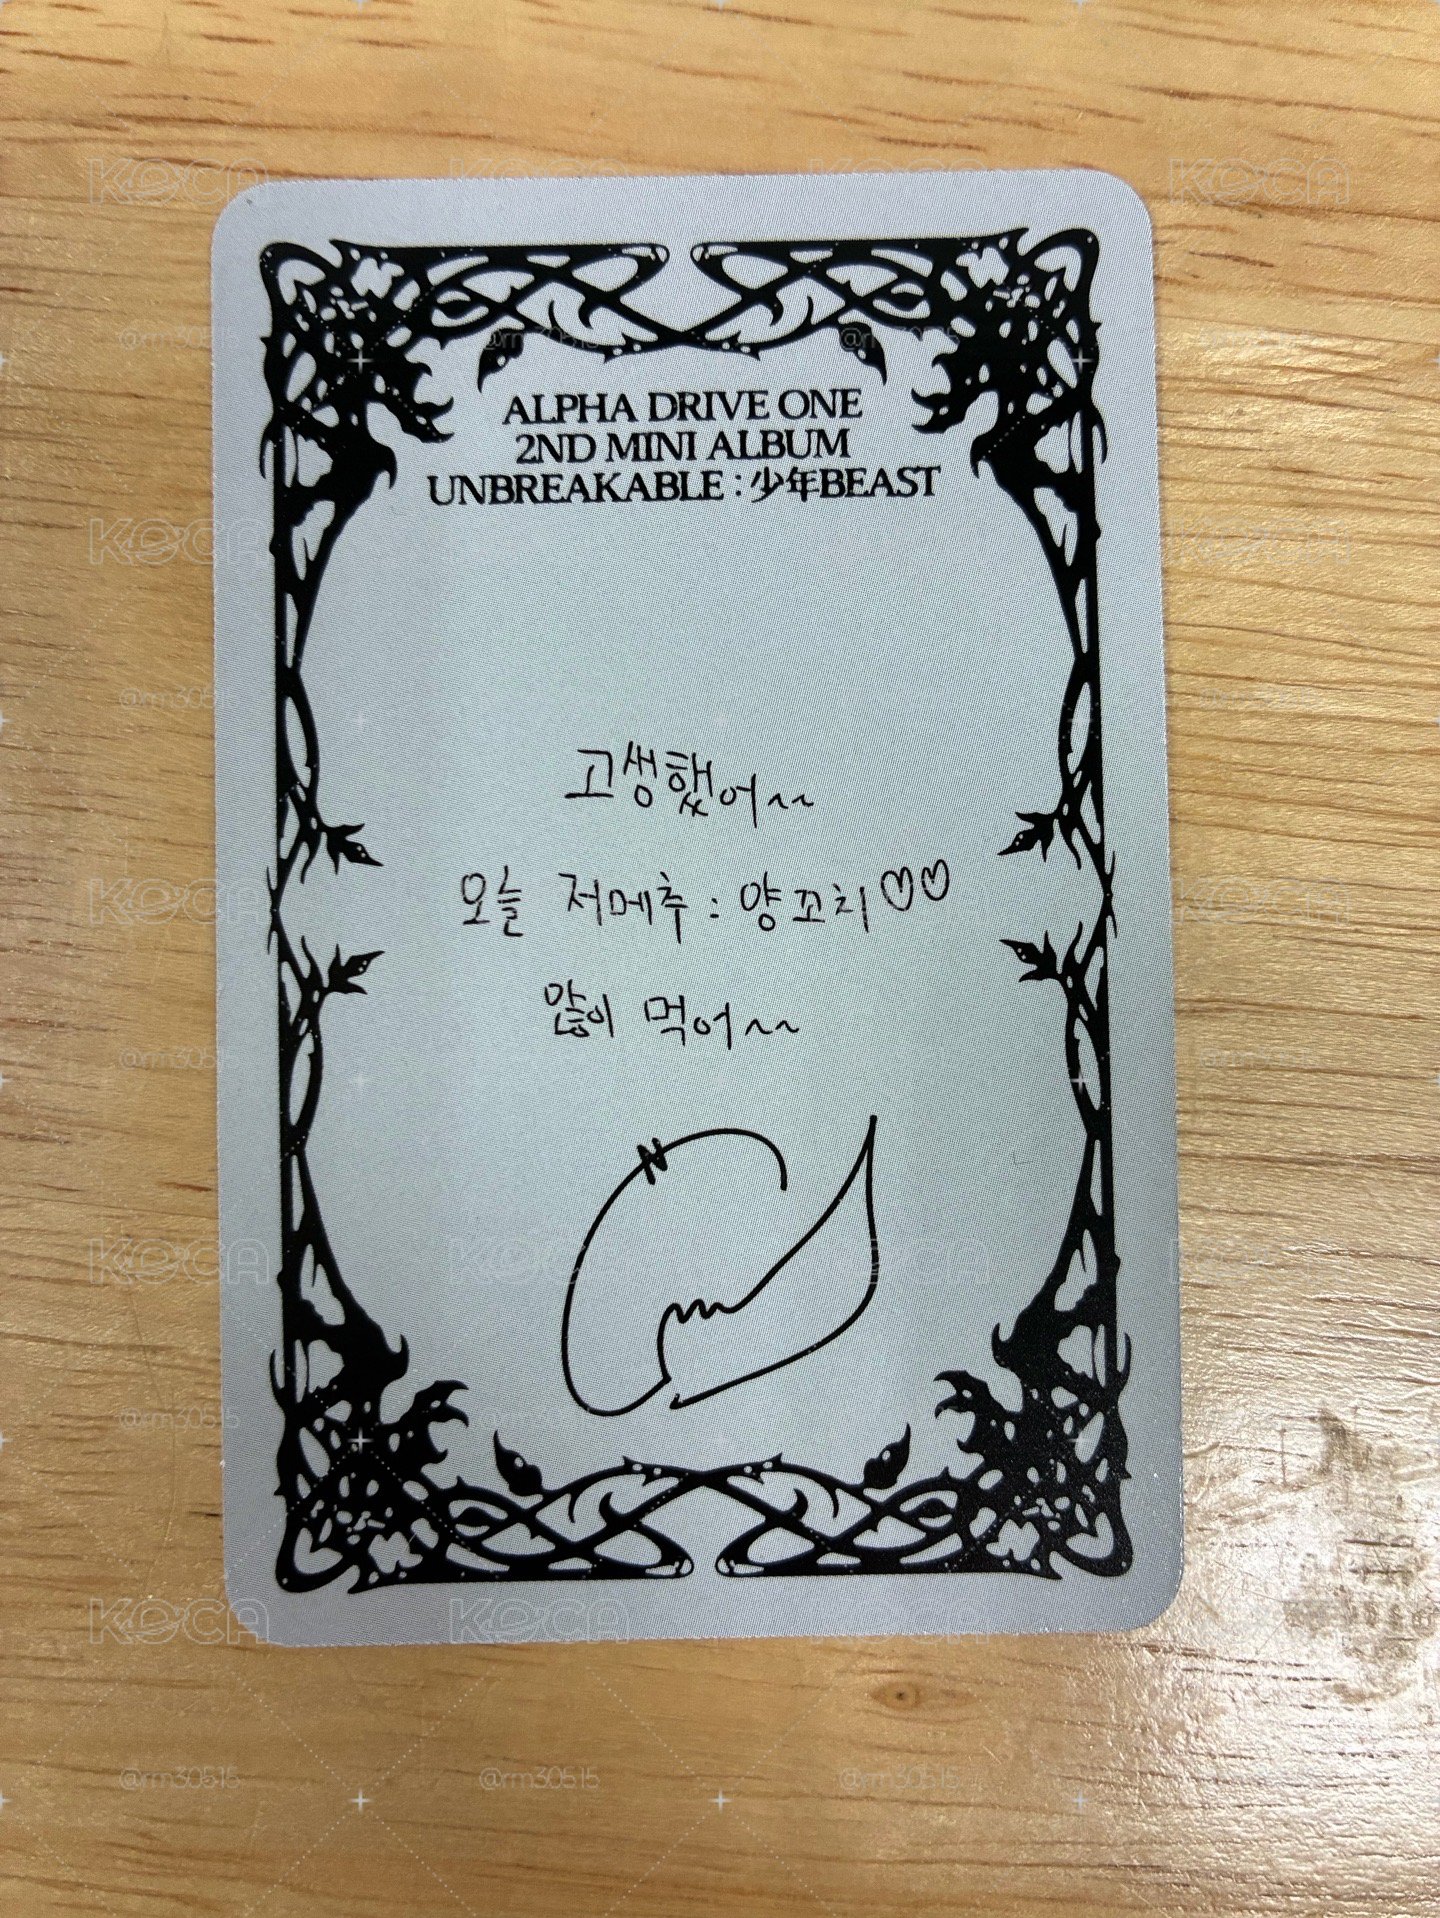 ALPHA DRIVE ONE
2ND MINI ALBUM
UNBREAKABLE : 少年BEAST
고생했어~~
오늘 저메추 : 양꼬치♡♡
많이 먹어~~
KOCA
@rm30515